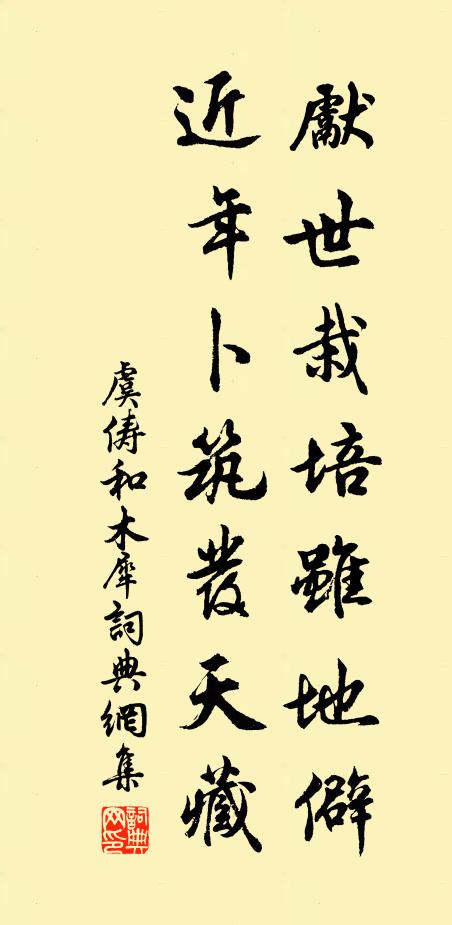 獻世栽培雖地僻
近年卜筑發天藏
虞儔和木犀詞典網集
詞典网印